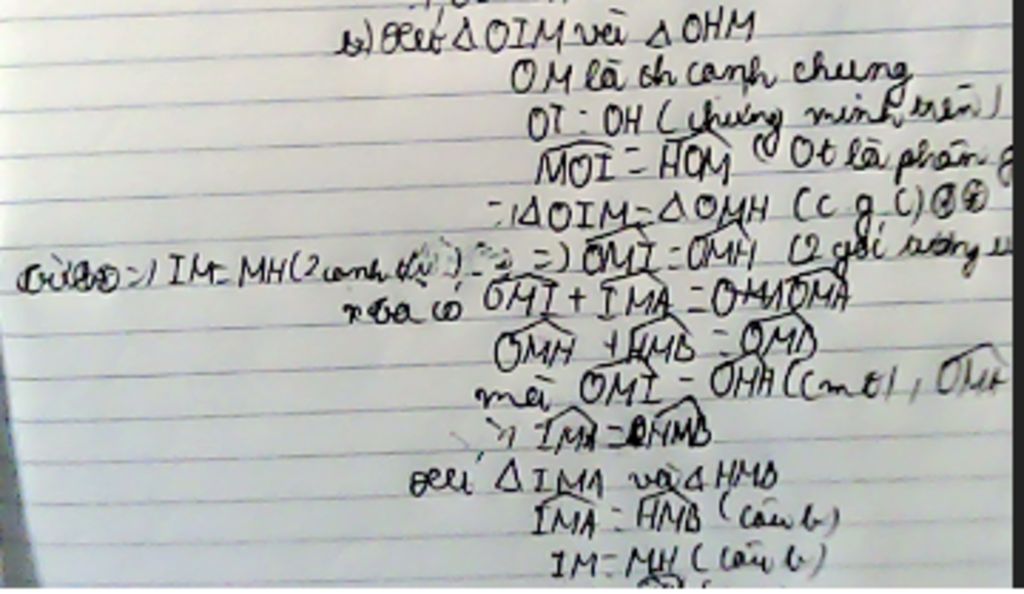 b) Xét Δ OIM và Δ OHM
OM là ch cạnh chung
OI = OH (chứng minh trên)
MOI = HOM ( Ot là phân g
=) ΔOIM = ΔOMH (c g c)
=) IM = MH (2 cạnh =) OMI = OMH (2 góc tương
ta có OMI + IMA = OMA
OMH + HMB = OMB
mà OMI = OHA (cmt), OMA
IMA = HMB
Xét Δ IMA và Δ HMB
IMA = HMB (câu b)
IM = MH (câu b)